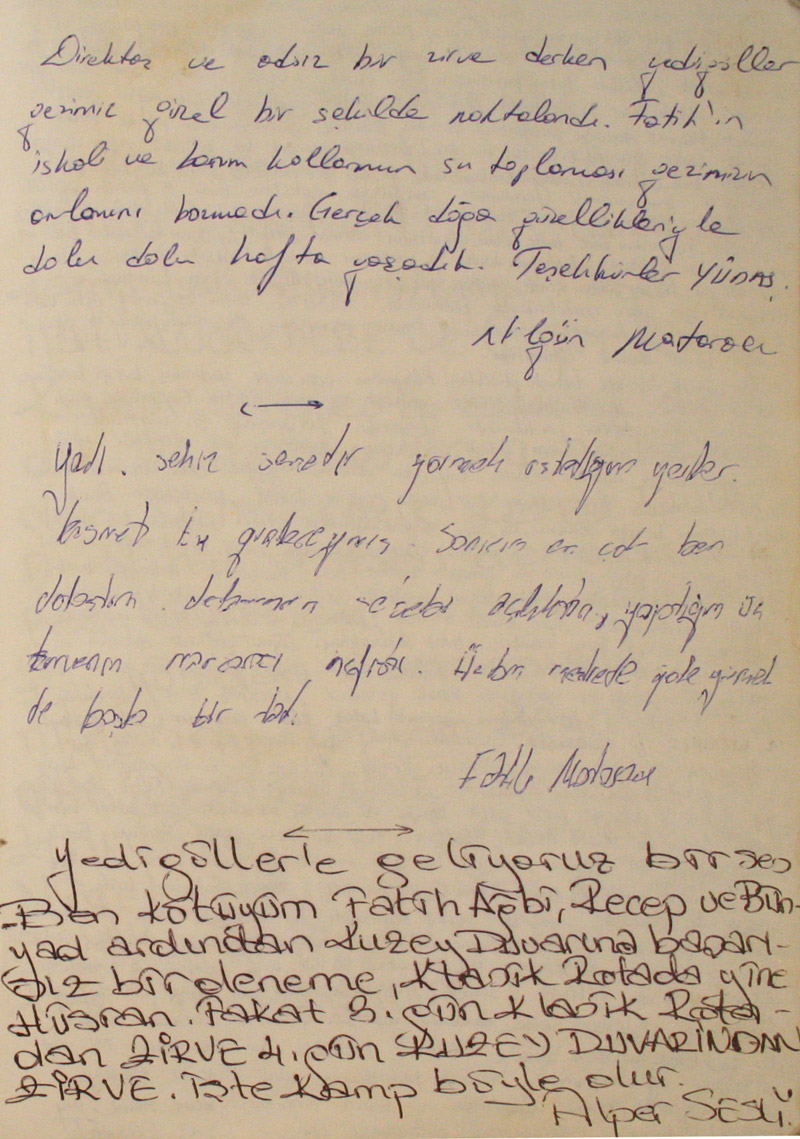 Direktaş ve adsız bir zirve derken yedigöller
gezimiz güzel bir şekilde noktalandı. Fatih'in
ishali ve benim kollarımın su toplaması gezimizin
anlamını bozmadı. Gerçek doğa güzellikleriyle
dolu dolu hafta yaşadık. Teşekkürler YÜDAŞ.
Nilgün Mataracı
Yedi, sekiz senedir görmek istediğim yerler.
kısmet bu
en çok ben
dolaştım. sebebi yaptığım
gölde yüzmek
de başka bir tad.
Fatih Mataracı
Yedigöllerle geliyoruz bir ses
Ben kötüyüm Fatih Abi, Recep ve Bün-
yad ardından Kuzey Duvarına başarı-
sız bir deneme, Klasik Rotada yine
Hüsran. Fakat 3. gün Klasik Rota-
dan ZİRVE 4. gün KUZEY DUVARINDAN
ZİRVE. işte Kamp böyle olur.
Alper SESLİ.